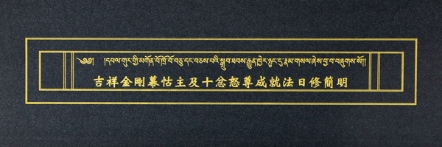 ༄༅། །དཔལ་གུར་གྱི་མགོན་པོ་ཁྲོ་བོ་བཅུ་དང་བཅས་པའི་སྒྲུབ་ཐབས་རྒྱུན་ཁྱེར་སྙིང་པོ་རྣམ་གསལ་ཞེས་བྱ་བ་བཞུགས་སོ།།
吉祥金剛幕怙主及十忿怒尊成就法日修簡明